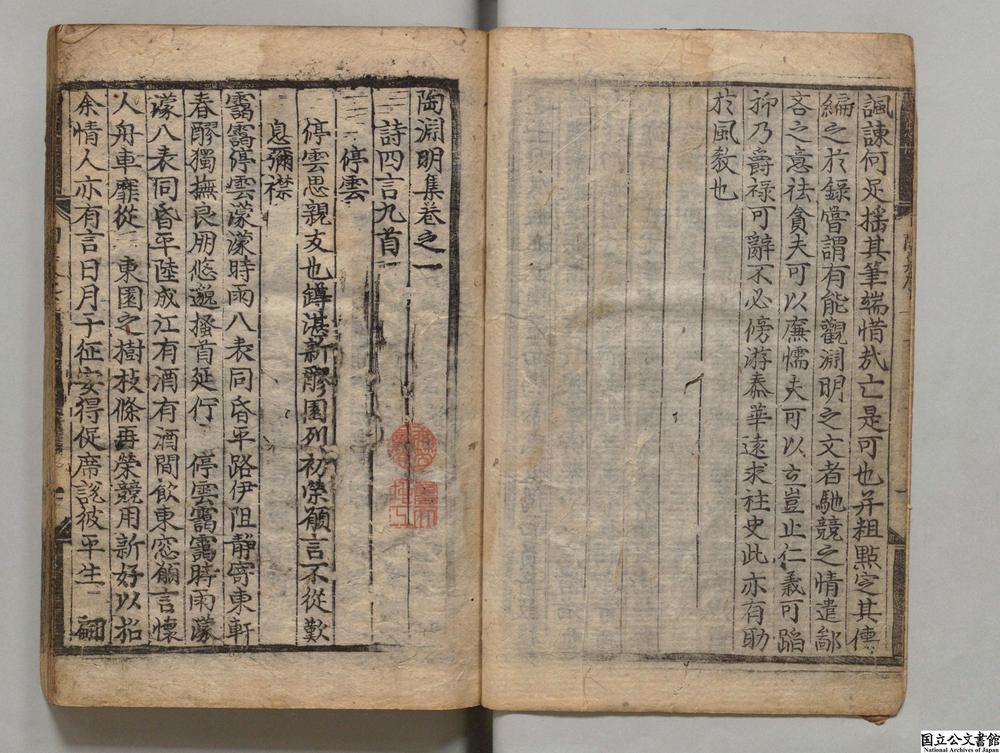 諷諫何足揺其筆端惜㢤亡是可也并粗㸃定其傳
編之於録甞謂有能觀淵明之文者馳競之情遣鄙
吝之意袪貪夫可以廉懦夫可以立豈止仁義可蹈
抑乃爵禄可辭不必傍游泰華遠求柱史此亦有助
於風敎也
陶淵明集卷之一
詩四言九首
停雲
停雲思親友也罇湛新醪園列初榮願言不從歎
息彌襟
靄靄停雲濛濛時雨八表同昏平路伊阻靜寄東軒
春醪獨撫良朋悠邈搔首延佇 停雲靄靄時雨濛
濛八表同昏平陸成江有酒有酒閒飲東窓願言懷
人舟車靡從 東園之樹枝條再榮競用新好以招
余情人亦有言日月于征安得促席說彼平生 翩
国立公文書館
National Archives of Japan